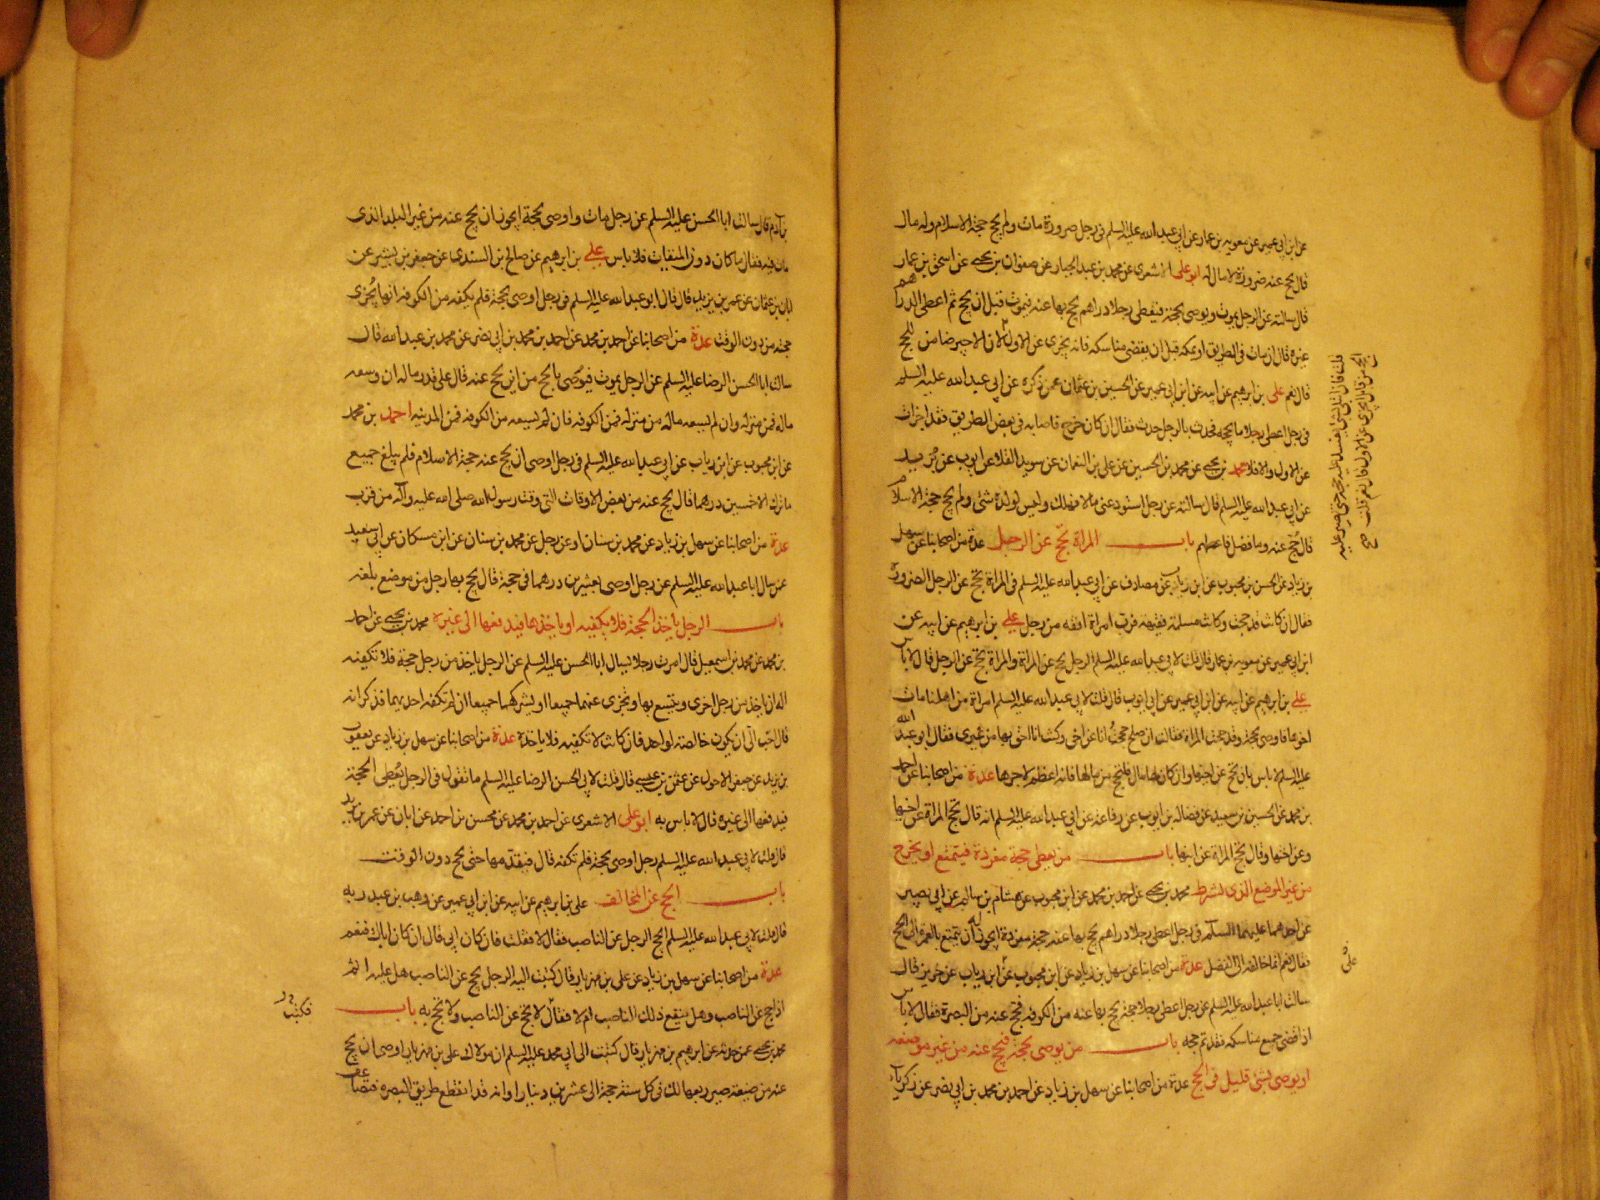 عن ابن ابي عمير عن معوية بن عمار عن ابي عبد الله عليه السلم في رجل صرورة مات ولم يحج حجة الاسلام وله مال
قال يحج عنه صرورة لا مال له ابو علي الاشعري عن محمد بن عبد الجبار عن صفوان بن يحيى عن اسحق بن عمار
قال سالته عن الرجل يموت ويوصي بحجة فيعطى رجل دراهم يحج بها عنه فيموت قبل ان يحج ثم اعطى الدراهم
غيره قال ان مات في الطريق او بمكة قبل ان يقضي مناسكه فانه يجزي عن الاول لان الاجير ضامن للحج
قال نعم علي بن ابرهيم عن ابيه عن ابن ابي عمير عن الحسين بن عثمان عمن ذكره عن ابي عبد الله عليه السلم
في رجل اعطى رجلا ما يحجه فحدث بالرجل حدث فقال ان كان خرج فاصابه في بعض الطريق فقد اجزات
عن الاول والا فلا محمد بن يحيى عن محمد بن الحسين عن علي بن النعمان عن سويد القلا عن ايوب عن بريد
عن ابي عبد الله عليه السلم قال سالته عن رجل استودعني مالا فهلك وليس لولده شئ ولم يحج حجة الاسلام
قال حج عنه وما فضل فاعطهم باب المراة تحج عن الرجل عدة من اصحابنا عن سهل
بن زياد عن الحسن بن محبوب عن ابن رياب عن مصادف عن ابي عبد الله عليه السلم في المراة تحج عن الرجل الصرورة
فقال ان كانت قد حجت وكانت مسلمة فقيهة فرب امراة افقه من رجل علي بن ابرهيم عن ابيه عن
ابن ابي عمير عن معوية بن عمار قال قلت لابي عبد الله عليه السلم الرجل يحج عن المراة والمراة تحج عن الرجل قال لا باس
علي بن ابرهيم عن ابيه عن ابن ابي عمير عن ابي ايوب قال قلت لابي عبد الله عليه السلم امراة من اهلنا مات
اخوها فاوصى بحجة وقد حجت المراة فقالت ان صلح حججت انا عن اخي وكنت انا احق بها من غيري فقال ابو عبد الله
عليه السلم لا باس بان تحج عن اخيها وان كان لها مال فلتحج من مالها فانه اعظم لاجرها عدة من اصحابنا عن احمد
بن محمد عن الحسين بن سعيد عن فضالة بن ايوب عن رفاعة عن ابي عبد الله عليه السلم انه قال تحج المراة عن اخيها
وعن اختها وقال تحج المراة عن ابنها باب من يعطى حجة مفردة فيتمتع او يخرج
من غير الموضع الذي يشترط محمد بن يحيى عن احمد بن محمد عن ابن محبوب عن هشام بن سالم عن ابي بصير
عن احدهما عليهما السلم في رجل اعطى رجلا دراهم يحج بها عنه حجة مفردة ايجوز له ان يتمتع بالعمرة الى الحج
فقال نعم انما خالفه الى الفضل عدة من اصحابنا عن سهل بن زياد عن ابن محبوب عن ابن رياب عن حريز قال
سالت ابا عبد الله عليه السلم عن رجل اعطى رجلا حجة يحج بها عنه من الكوفة فحج عنه من البصرة فقال لا باس
اذا قضى جميع مناسكه فقد تم حجه باب من يوصي بحجة فيحج عنه من غير موضعه
او يوصي بشئ قليل في الحج عدة من اصحابنا عن سهل بن زياد عن احمد بن محمد بن ابي نصر عن زكريا
قلت فان ابتلي بشئ يفسد عليه حجه حتى يصير عليه
الحج من قابل ايجزي عن الاول قال نعم قلت
بن آدم قال سالت ابا الحسن عليه السلم عن رجل مات واوصى بحجة ايجوز ان يحج عنه من غير البلد الذي
مات فيه فقال ما كان دون الميقات فلا باس علي بن ابرهيم عن صالح بن السندي عن جعفر بن بشير عن
ابان بن عثمان عن عمر بن يزيد قال قال ابو عبد الله عليه السلم في رجل اوصى بحجة فلم تكفه من الكوفة انها تجزي
حجته من دون الوقت عدة من اصحابنا عن احمد بن محمد عن احمد بن محمد بن ابي نصر عن محمد بن عبد الله قال
سالت ابا الحسن الرضا عليه السلم عن الرجل يموت فيوصي بالحج من اين يحج عنه قال على قدر ماله ان وسعه
ماله فمن منزله وان لم يسعه ماله من منزله فمن الكوفة فان لم يسعه من الكوفة فمن المدينة احمد بن محمد
عن ابن محبوب عن ابن رياب عن ابي عبد الله عليه السلم في رجل اوصى ان يحج عنه حجة الاسلام فلم يبلغ جميع
ما ترك الا خمسين درهما قال يحج عنه من بعض الاوقات التي وقت رسول الله صلى الله عليه وآله من قرب
عدة من اصحابنا عن سهل بن زياد عن محمد بن سنان او عن رجل عن محمد بن سنان عن ابن مسكان عن ابي سعيد
عمن سال ابا عبد الله عليه السلم عن رجل اوصى بعشرين درهما في حجة قال يحج بها رجل من موضع بلغه
باب الرجل ياخذ الحجة فلا تكفيه او ياخذها فيدفعها الى غيره محمد بن يحيى عن احمد
بن محمد عن محمد بن اسمعيل قال امرت رجلا يسال ابا الحسن عليه السلم عن الرجل ياخذ من رجل حجة فلا تكفيه
اله ان ياخذ من رجل اخرى ويتسع بها وتجزي عنهما جميعا او يشركهما جميعا ان لم تكفه احديهما فذكر انه
قال احب الي ان تكون خالصة لواحد فان كانت لا تكفيه فلا ياخذه عدة من اصحابنا عن سهل بن زياد عن يعقوب
بن يزيد عن جعفر الاحول عن عثمن بن عيسى قال قلت لابي الحسن الرضا عليه السلم ما تقول في الرجل يعطى الحجة
فيدفعها الى غيره قال لا باس به ابو علي الاشعري عن احمد بن محمد عن محسن بن احمد عن ابان عن عمر بن يزيد
قال قلت لابي عبد الله عليه السلم رجل اوصى بحجة فلم تكفه قال فيقدمها حتى يحج دون الوقت
باب الحج عن المخالف علي بن ابرهيم عن ابيه عن ابن ابي عمير عن وهب بن عبد ربه
قال قلت لابي عبد الله عليه السلم ايحج الرجل عن الناصب فقال لا فقلت فان كان ابي قال ان كان اباك فنعم
عدة من اصحابنا عن سهل بن زياد عن علي بن مهزيار قال كتبت اليه الرجل يحج عن الناصب هل عليه اثم
اذا حج عن الناصب وهل ينفع ذلك الناصب ام لا فقال لا يحج عن الناصب ولا يحج به باب
محمد بن يحيى عمن حدثه عن ابرهيم بن مهزيار قال كتبت الى ابي محمد عليه السلم ان مولاك علي بن مهزيار اوصى ان يحج
عنه من ضيعة صير ربعها لك في كل سنة حجة الى عشرين دينارا وانه قد انقطع طريق البصرة فتضاعف
فكتب